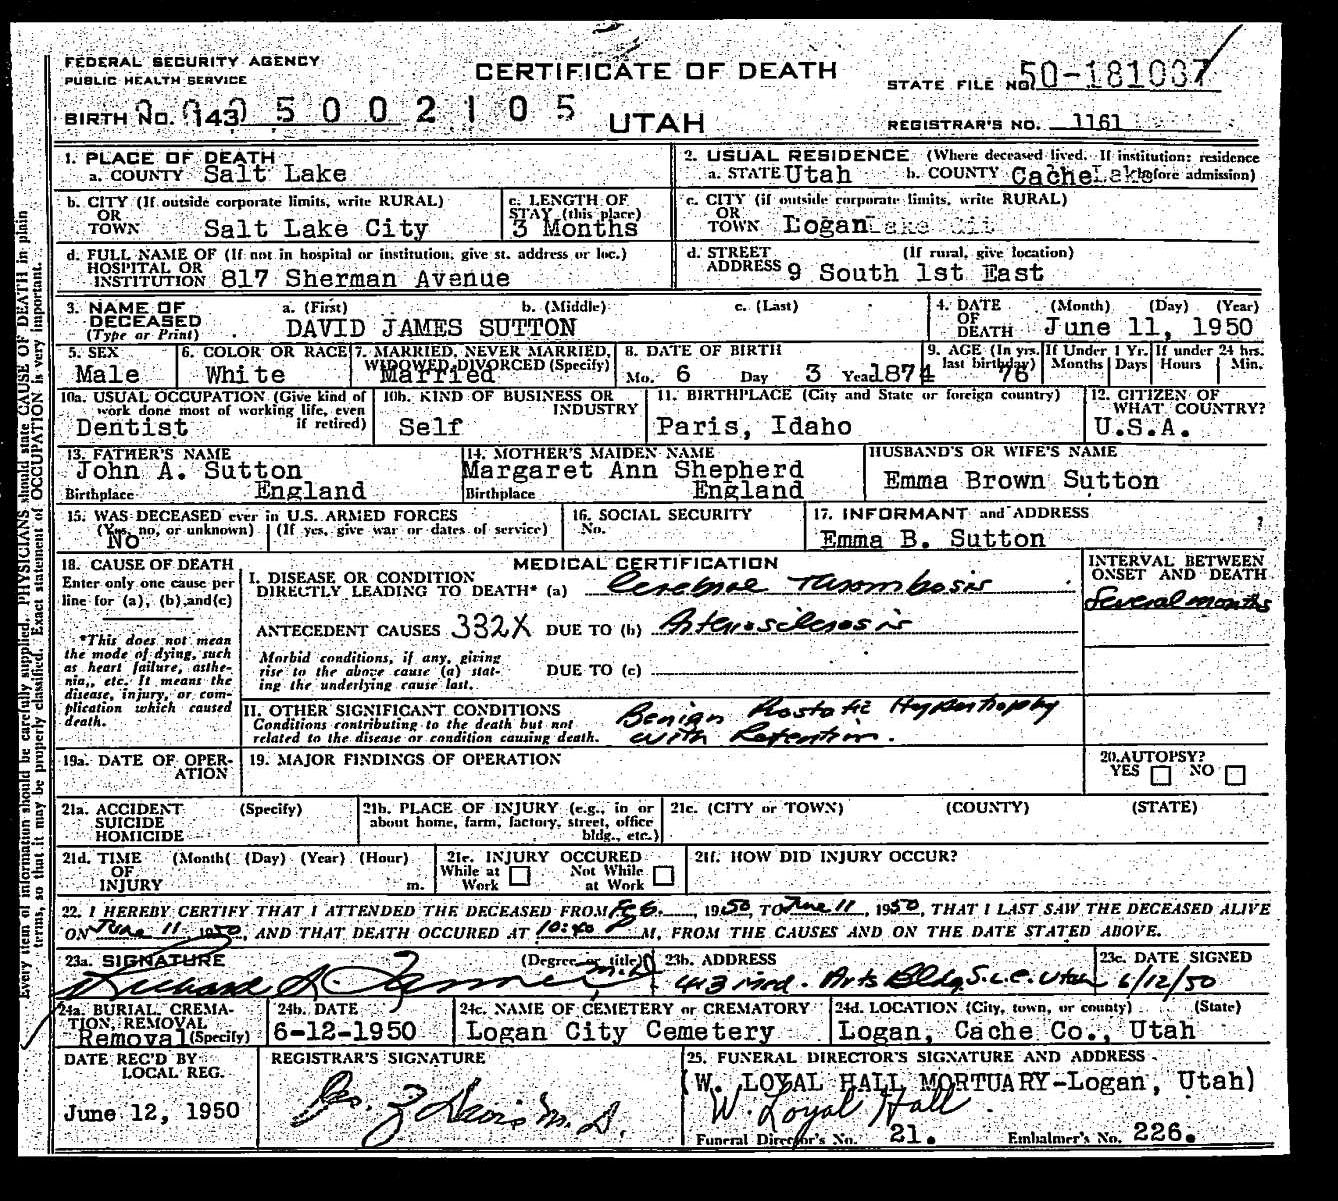 FEDERAL SECURITY AGENCY
PUBLIC HEALTH SERVICE
CERTIFICATE OF DEATH
STATE FILE NO. 50-181037
BIRTH NO. 143 5 0 0 2 1 0 5
UTAH
REGISTRAR'S NO. 1161
1. PLACE OF DEATH
a. COUNTY Salt Lake
2. USUAL RESIDENCE (Where deceased lived. If institution: residence before admission)
a. STATE Utah b. COUNTY Cache
b. CITY (If outside corporate limits, write RURAL)
OR
TOWN Salt Lake City
c. LENGTH OF
STAY (this place)
3 Months
c. CITY (if outside corporate limits, write RURAL)
OR
TOWN Logan
d. FULL NAME OF (If not in hospital or institution, give st. address or loc.)
HOSPITAL OR
INSTITUTION 817 Sherman Avenue
d. STREET (If rural, give location)
ADDRESS 9 South 1st East
3. NAME OF a. (First) b. (Middle) c. (Last)
DECEASED
(Type or Print) DAVID JAMES SUTTON
4. DATE (Month) (Day) (Year)
OF
DEATH June 11, 1950
5. SEX
Male
6. COLOR OR RACE
White
7. MARRIED, NEVER MARRIED,
WIDOWED, DIVORCED (Specify)
Married
8. DATE OF BIRTH
Mo. 6 Day 3 Year 1874
9. AGE (In yrs. last birthday) 76
If Under 1 Yr. Months Days
If under 24 hrs. Hours Min.
10a. USUAL OCCUPATION (Give kind of
work done most of working life, even
if retired)
Dentist
10b. KIND OF BUSINESS OR
INDUSTRY
Self
11. BIRTHPLACE (City and State or foreign country)
Paris, Idaho
12. CITIZEN OF
WHAT COUNTRY?
U.S.A.
13. FATHER'S NAME
John A. Sutton
Birthplace England
14. MOTHER'S MAIDEN NAME
Margaret Ann Shepherd
Birthplace England
HUSBAND'S OR WIFE'S NAME
Emma Brown Sutton
15. WAS DECEASED ever in U.S. ARMED FORCES
(Yes, no, or unknown) (If yes, give war or dates of service)
No
16. SOCIAL SECURITY
No.
17. INFORMANT and ADDRESS
Emma B. Sutton
18. CAUSE OF DEATH
Enter only one cause per
line for (a), (b), and (c)
*This does not mean
the mode of dying, such
as heart failure, asthe-
nia,, etc. It means the
disease, injury, or com-
plication which caused
death.
MEDICAL CERTIFICATION
I. DISEASE OR CONDITION
DIRECTLY LEADING TO DEATH* (a) Cerebral Thrombosis
ANTECEDENT CAUSES 332X DUE TO (b) Arteriosclerosis
Morbid conditions, if any, giving
rise to the above cause (a) stat-
ing the underlying cause last.
DUE TO (c)
INTERVAL BETWEEN
ONSET AND DEATH
Several months
II. OTHER SIGNIFICANT CONDITIONS
Conditions contributing to the death but not
related to the disease or condition causing death.
Benign Prostatic Hypertrophy
with Retention.
19a. DATE OF OPER-
ATION
19. MAJOR FINDINGS OF OPERATION
20. AUTOPSY?
YES NO
21a. ACCIDENT (Specify)
SUICIDE
HOMICIDE
21b. PLACE OF INJURY (e.g., in or
about home, farm, factory, street, office
bldg., etc.)
21c. (CITY or TOWN) (COUNTY) (STATE)
21d. TIME (Month( (Day) (Year) (Hour)
OF
INJURY m.
21e. INJURY OCCURED
While at Work Not While at Work
21f. HOW DID INJURY OCCUR?
22. I HEREBY CERTIFY THAT I ATTENDED THE DECEASED FROM Feb. , 1950, TO June 11, 1950, THAT I LAST SAW THE DECEASED ALIVE
ON June 11 1950, AND THAT DEATH OCCURED AT 10:40 P M, FROM THE CAUSES AND ON THE DATE STATED ABOVE.
23a. SIGNATURE (Degree or title)
Richard M.D.
23b. ADDRESS
413 Med. Arts Bldg. S.L.C. Utah
23c. DATE SIGNED
6/12/50
24a. BURIAL, CREMA-
TION, REMOVAL
Removal (Specify)
24b. DATE
6-12-1950
24c. NAME OF CEMETERY or CREMATORY
Logan City Cemetery
24d. LOCATION (City, town, or county) (State)
Logan, Cache Co., Utah
DATE REC'D BY
LOCAL REG.
June 12, 1950
REGISTRAR'S SIGNATURE
M.D.
25. FUNERAL DIRECTOR'S SIGNATURE AND ADDRESS
(W. LOYAL HALL MORTUARY-Logan, Utah)
W. Loyal Hall
Funeral Director's No. 21. Embalmer's No. 226.
Every item of information should be carefully supplied. PHYSICIANS should state CAUSE OF DEATH in plain
terms, so that it may be properly classified. Exact statement of OCCUPATION is very important.